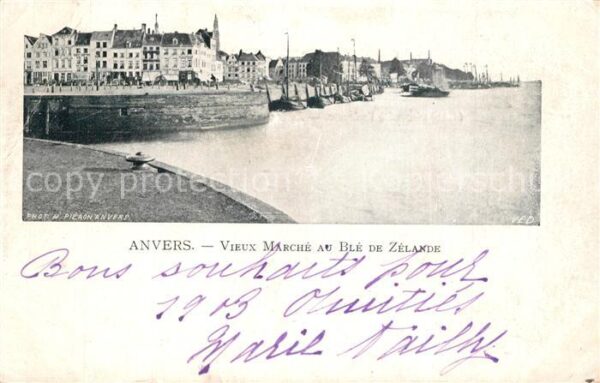 copy protection
Kopierschutz
PHOT. H. PICRON ANVERS
VED
ANVERS. — VIEUX MARCHÉ AU BLÉ DE ZÉLANDE
Bons souhaits pour
1903 Amitiés
Marie